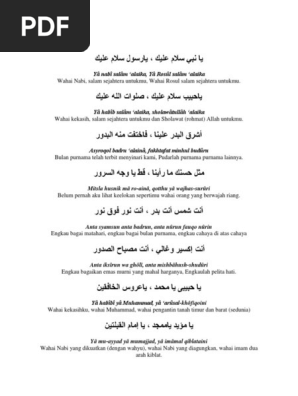 PDF
يا نبي سلام عليك ، يارسول سلام عليك
Yâ nabî salâm 'alaika, Yâ Rosûl salâm 'alaika
Wahai Nabi, salam sejahtera untukmu. Wahai Rosul salam sejahtera untukmu.
ياحبيب سلام عليك ، صلوات الله عليك
Yâ habîb salâm 'alaika, sholawâtullâh 'alaika
Wahai kekasih, salam sejahtera untukmu dan Sholawat (rohmat) Allah untukmu.
أشرق البدر علينا ، فاختفت منه البدور
Asyroqol badru 'alainâ, fakhtafat minhul budûru
Bulan purnama telah terbit menyinari kami, Pudarlah purnama purnama lainnya.
مثل حسنك ما رأينا ، قط يا وجه السرور
Mitsla husnik mâ ro-ainâ, qotthu yâ wajhas-surûri
Belum pernah aku lihat keelokan sepertimu wahai orang yang berwajah riang.
أنت شمس أنت بدر ، أنت نور فوق نور
Anta syamsun anta badrun, anta nûrun fauqo nûrin
Engkau bagai matahari, engkau bagai bulan purnama, engkau cahaya di atas cahaya
أنت إكسير وغالي ، أنت مصباح الصدور
Anta iksîrun wa ghôlî, anta mishbâhush-shudûri
Engkau bagaikan emas murni yang mahal harganya, Engkaulah pelita hati.
يا حبيبى يا محمد ، ياعروس الخافقين
Yâ habîbî yâ Muhammad, yâ 'arûsal-khôfiqoini
Wahai kekasihku, wahai Muhammad, wahai pengantin tanah timur dan barat (sedunia)
يا مؤيد ياممجد ، يا إمام القبلتين
Yâ mu-ayyad yâ mumajjad, yâ imâmal qiblataini
Wahai Nabi yang dikuatkan (dengan wahyu), wahai Nabi yang diagungkan, wahai imam dua
arah kiblat.